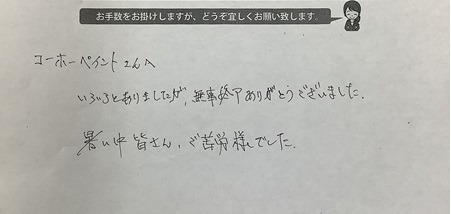 お手数をお掛けしますが、どうぞ宜しくお願い致します。
コーホーペイントさんへ
いろいろとありましたが、無事終了ありがとうございました。
暑い中皆さん、ご苦労様でした。